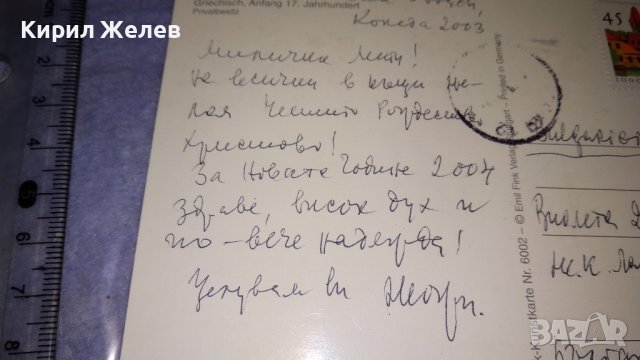 Кирил Желев
Griechisch, Anfang 17. Jahrhundert
Privatbesitz
2003
45
Миличка Мати!
на всички в къщи же-
лая Честито Рождество
Христово!
За Новата Година 2004
здраве, висок дух и
по-вече надежда!
Целувам ви
Виолета
ж.к.
-Kunstkarte Nr. 6002 – © Emil Fink Verlag, Stuttgart – Printed in Germany
BAZAR
5
6
7
8